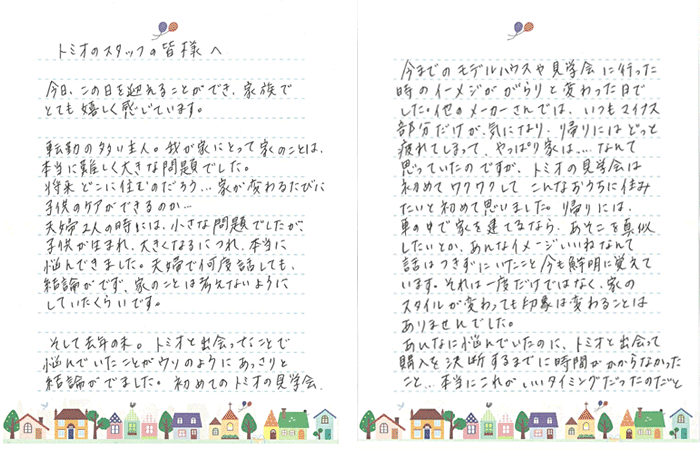 トミオのスタッフの皆様へ
今日、この日を迎えることができ、家族で
とても嬉しく感じています。
転勤の多い主人。我が家にとって家のことは、
本当に難しく大きな問題でした。
将来どこに住むのだろう…家が変わるたびに
子供のケアができるのか…
夫婦2人の時には、小さな問題でしたが、
子供が生まれ、大きくなるにつれ、本当に
悩んできました。夫婦で何度話しても、
結論がでず、家のことは考えないように
していたくらいです。
そして去年の末。トミオと出会ったことで
悩んでいたことがウソのようにあっさりと
結論がでました。初めてのトミオの見学会
今までのモデルハウスや見学会に行った
時のイメージががらりと変わった日で
した。他のメーカーさんでは、いつもマイナス
部分だけが、気になり、帰りにはどっと
疲れてしまって、やっぱり家は…なんて
思っていたのですが、トミオの見学会は
初めてワクワクして こんなおうちに住み
たいと初めて思いました。帰りには、
車の中で家を建てるなら、あそこを真似
したいとか、あんなイメージいいねなんて
話はつきずにいたこと今も鮮明に覚えて
います。それは一度だけではなく、家の
スタイルが変わっても印象は変わることは
ありませんでした。
あんなに悩んでいたのに、トミオと出会って
購入を決断するまでに時間がかからなかった
こと…本当にこれがいいタイミングだったのだと